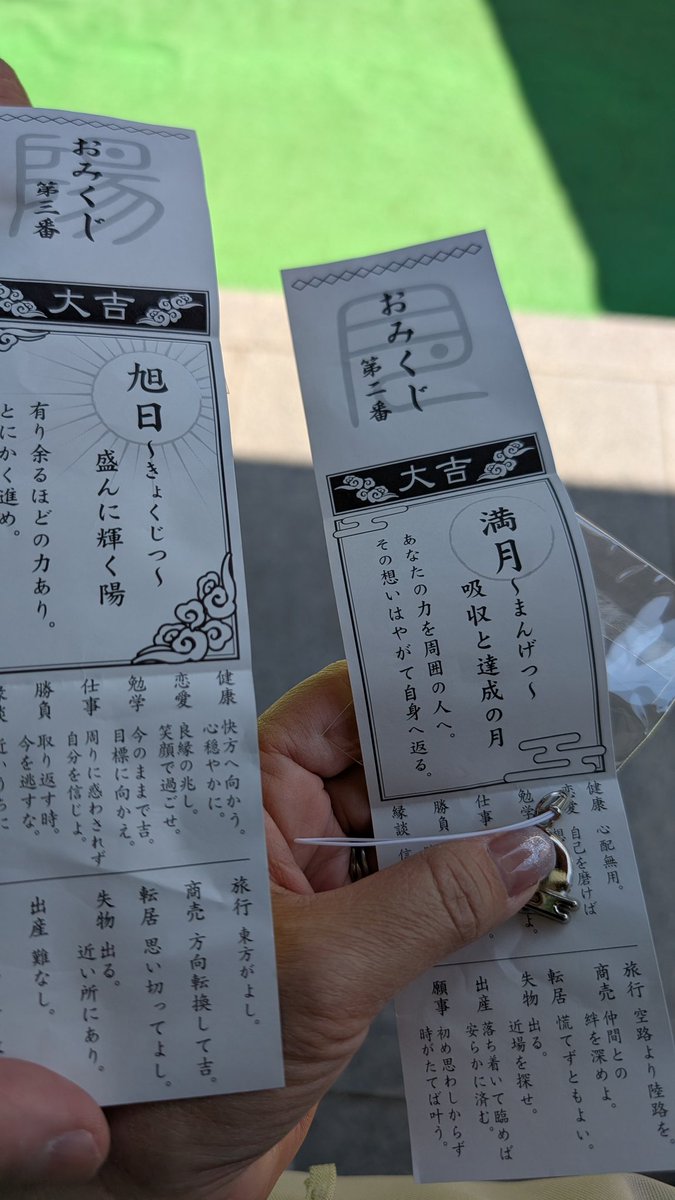 おみくじ
第三番
大吉
旭日〜きょくじつ〜
盛んに輝く陽
有り余るほどの力あり。
とにかく進め。
健康 快方へ向かう。
心穏やかに。
恋愛 良縁の兆し。
笑顔で過ごせ。
勉学 今のままで吉。
目標に向かえ。
仕事 周りに惑わされず
自分を信じよ。
勝負 取り返す時。
今を逃すな。
縁談 近いうちに
旅行 東方がよし。
商売 方向転換して吉。
転居 思い切ってよし。
失物 出る。
近い所にあり。
出産 難なし。
おみくじ
第二番
大吉
満月〜まんげつ〜
吸収と達成の月
あなたの力を周囲の人へ。
その想いはやがて自身へ返る。
健康 心配無用。
恋愛 自己を磨けば
勉学
仕事
勝負
縁談
旅行 空路より陸路を。
商売 仲間との
絆を深めよ。
転居 慌てずともよい。
失物 出る。
近場を探せ。
出産 落ち着いて臨めば
安らかに済む。
願事 初め思わしからず
時がたてば叶う。